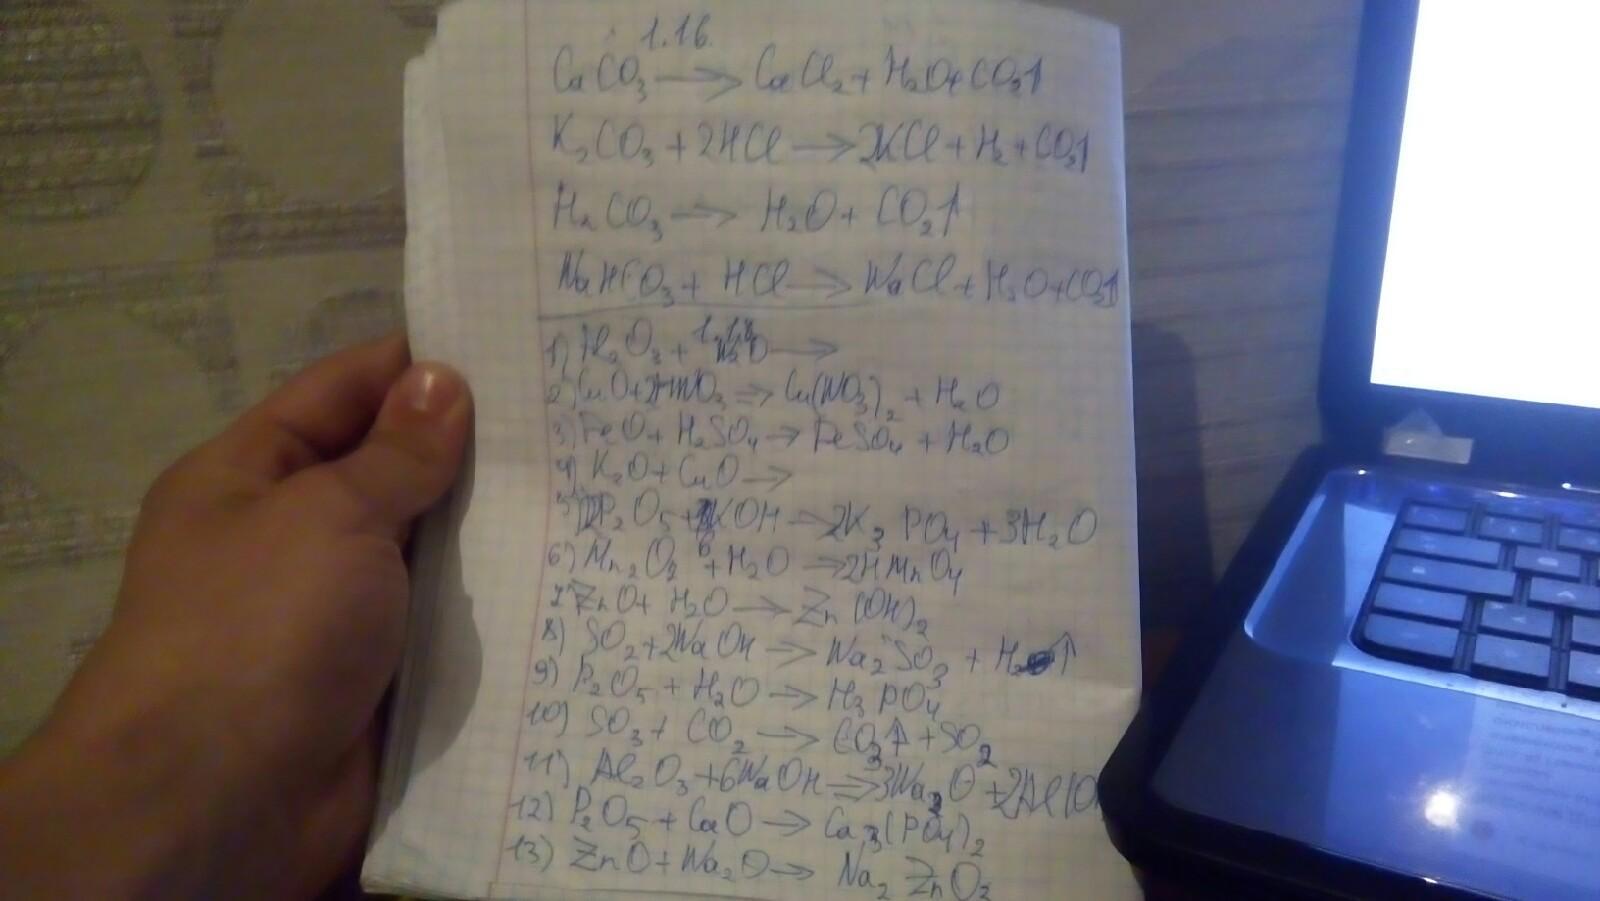 1.16.
CaCO3 → CaCl2 + H2O + CO2↑
K2CO3 + 2HCl → 2KCl + H2 + CO2↑
H2CO3 → H2O + CO2↑
NaHCO3 + HCl → NaCl + H2O + CO2↑
1.18
1) Al2O3 + H2O →
2) CuO + 2HNO3 ⇒ Cu(NO3)2 + H2O
3) FeO + H2SO4 → FeSO4 + H2O
4) K2O + CuO →
5) P2O5 + 6KOH → 2K3PO4 + 3H2O
6) Mn2O7 + H2O → 2HMnO4
7) ZnO + H2O → Zn(OH)2
8) SO2 + 2NaOH → Na2SO3 + H2↑
9) P2O5 + H2O → H3PO4
10) SO3 + CO2 → CO3↑ + SO2
11) Al2O3 + 6NaOH ⇒ 3Na2O + 2Al(OH
12) P2O5 + CaO → Ca3(PO4)2
13) ZnO + Na2O → Na2ZnO2